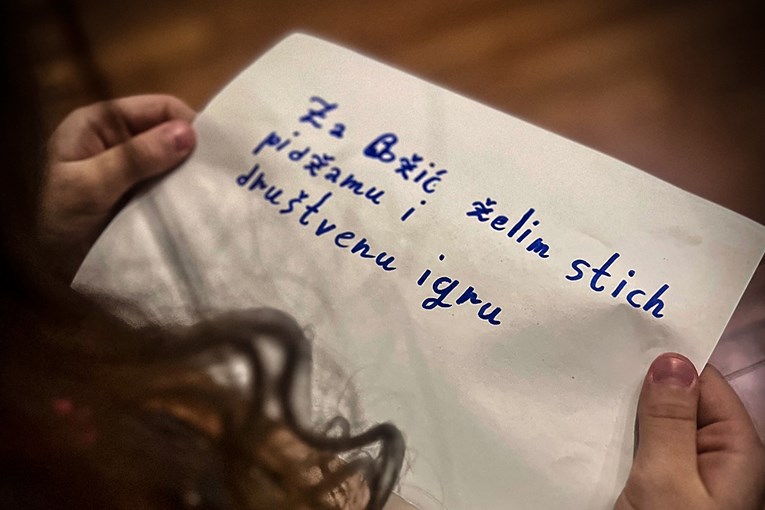 Za Božić želim stich
pidžamu i
društvenu igru